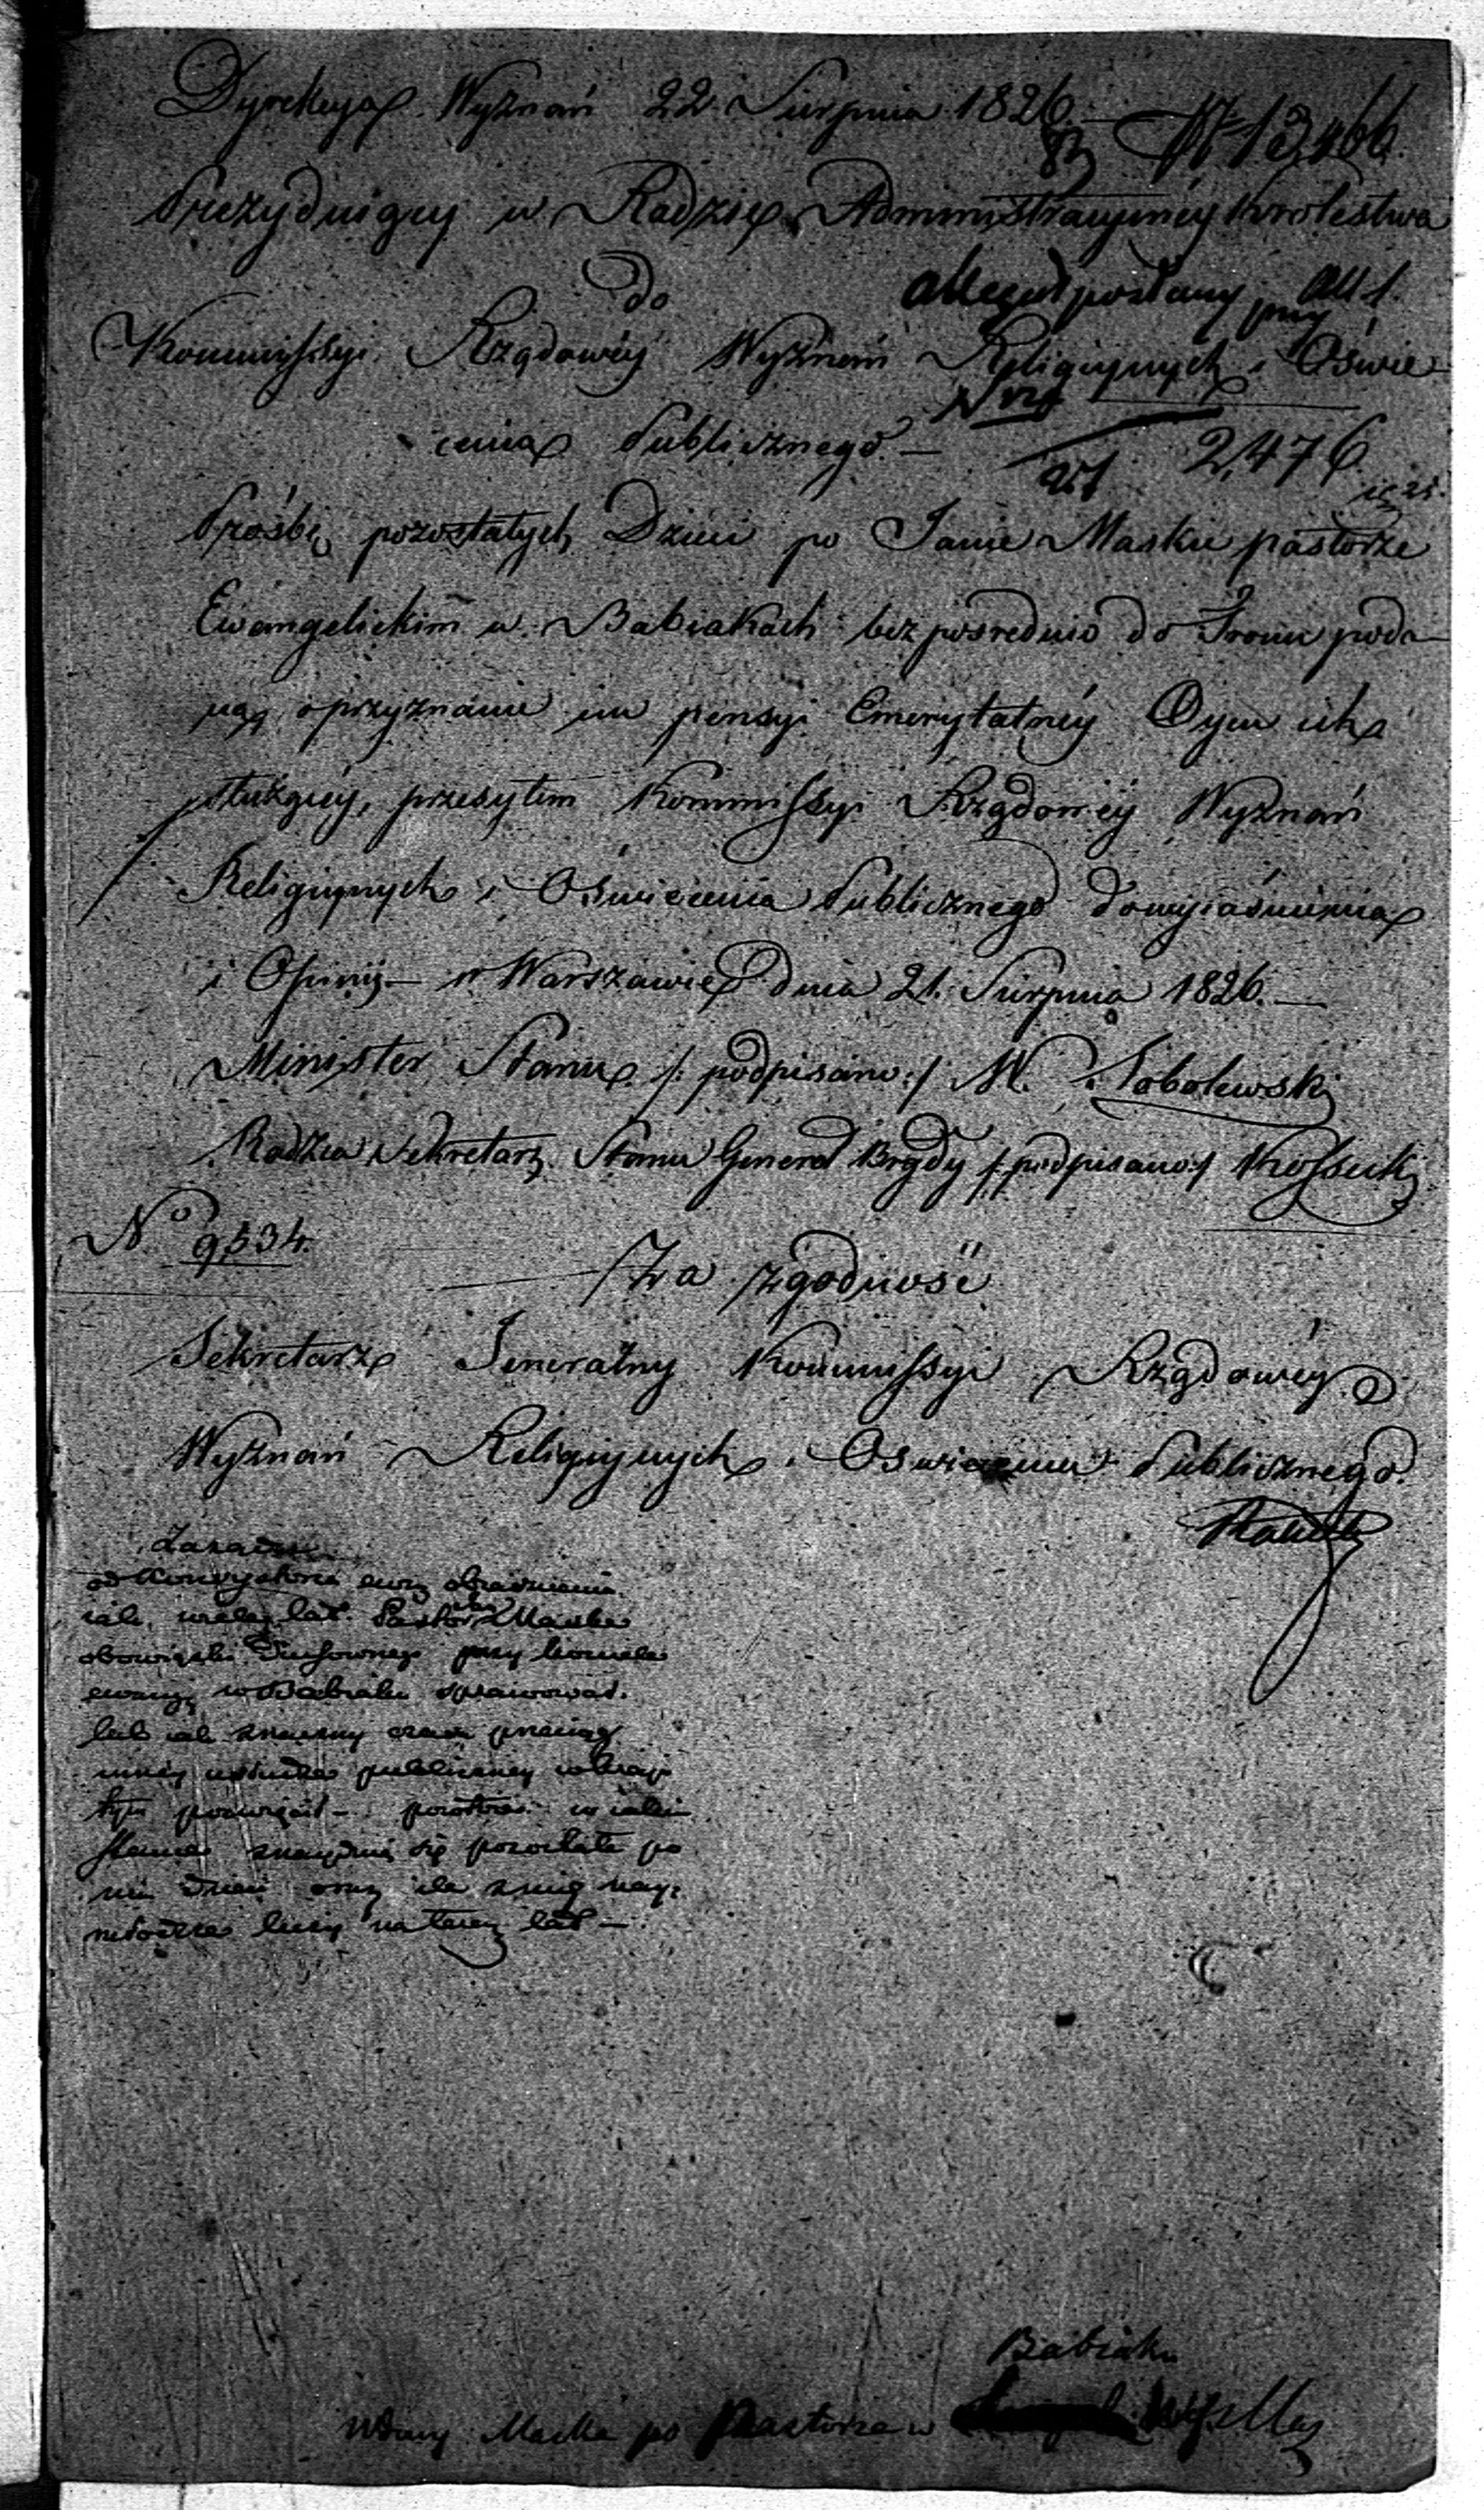 Dyrekcya Wyznań 22 Sierpnia 1826.
N 13,466.
Prezyduiący w Radzie Administracyiney Krolestwa
do
allegat posłany przy
Kommissyi Rządowéy Wyznań Religiynych i Oświe-
cenia Publicznego. —
2,476
Prośbę pozostałych Dzieci po Janie Maskie pastorze
Ewangelickim w Babiakach bezpośrednio do Tronu poda-
ną, o przyznanie im pensyi Emerytalnéy Oycu ich
służącéy, przesyłam Kommissyi Rządowéy Wyznań
Religiynych i Oświecenia Publicznego do wyiaśnienia
i Opinij — w Warszawie dnia 21. Sierpnia 1826. —
Minister Stanu /: podpisano :/ M. Sobolewski
Radzca Sekretarz Stanu Generał Brygdy /: podpisano :/ Kossecki
No 9,534.
Za zgodność
Sekretarz Jeneralny Kommissyi Rządowéy
Wyznań Religiynych i Oswiecenia Publicznego.
od Konsystorza obiasnienia
iak wiele lat Pastor Maske
obowiązki Duchownego przy kościele
ewang w Babiaku sprawował.
lub iak znaczny czasu przeciąg
publiczney w kraju
tym poświęcił — powtóre w iakim
stanie znayduią się pozostałe po
nim dzieci oraz ile z nich nay-
młodsze liczy na teraz lat —
Babiaku
Wdowy Maske po Pastorze w